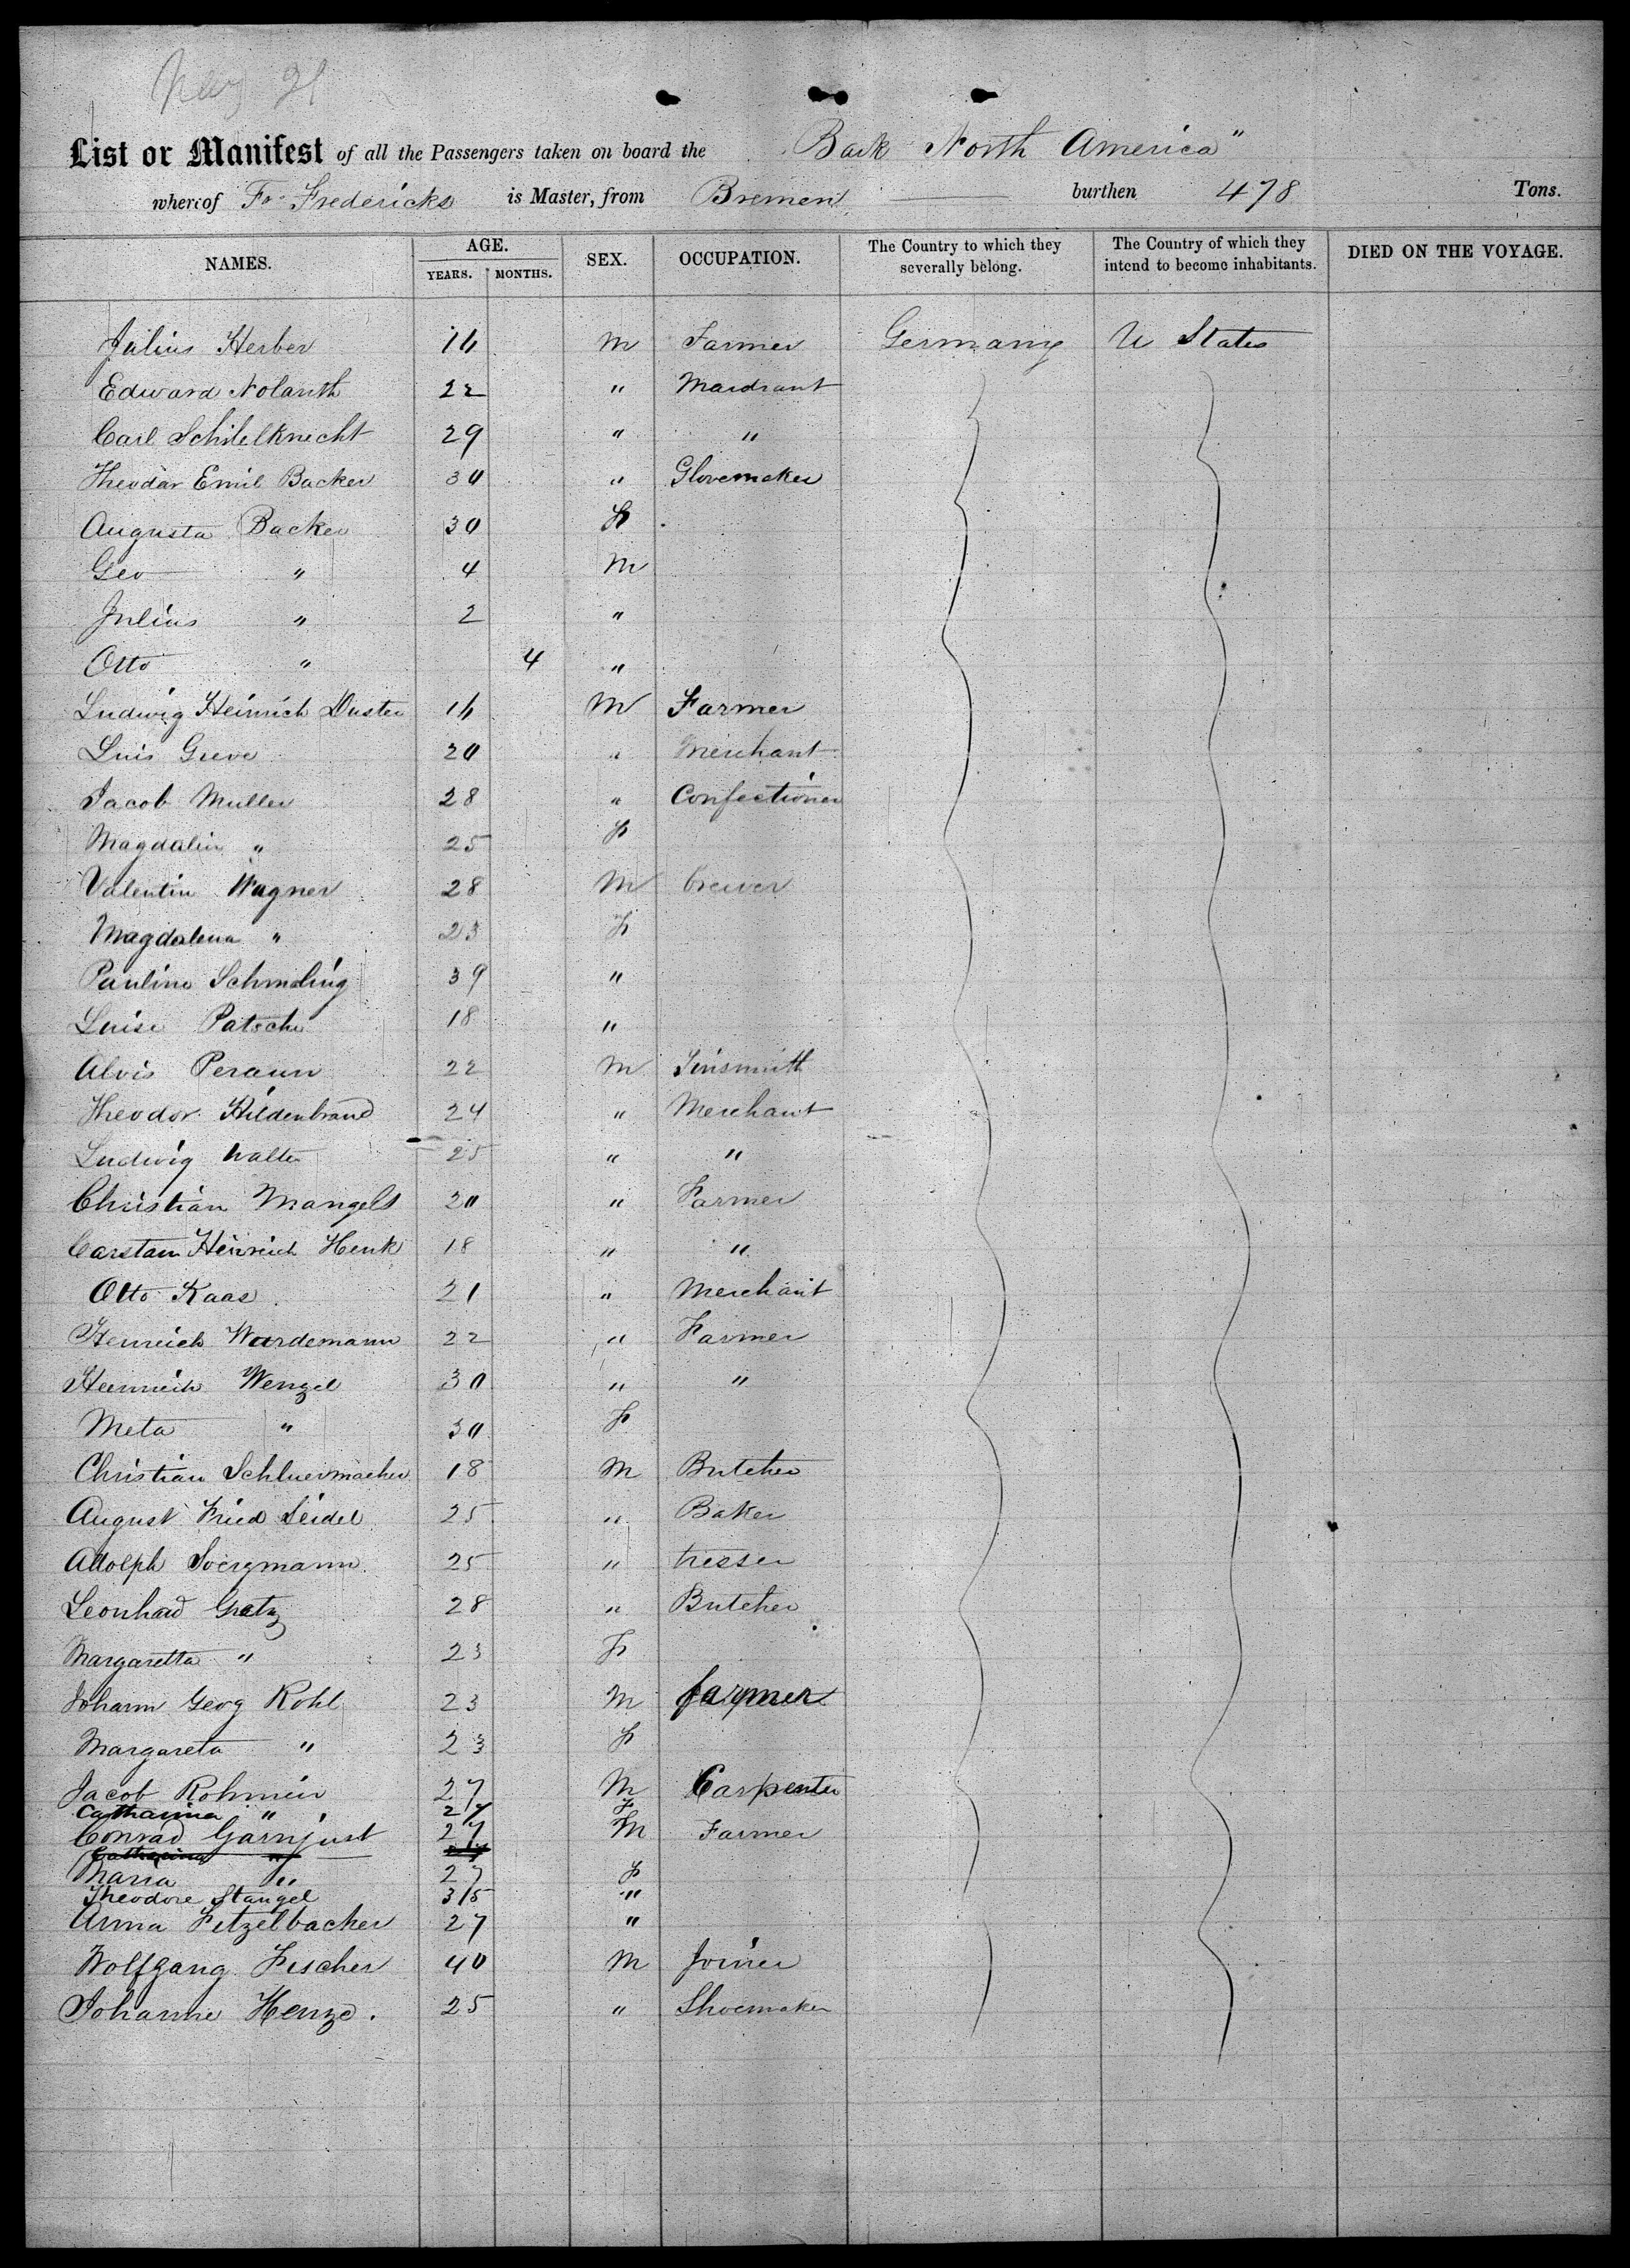 May 21
List or Manifest of all the Passengers taken on board the Bark North America"
whereof Fr. Fredericks is Master, from Bremen burthen 478 Tons.
NAMES. AGE. YEARS. MONTHS. SEX. OCCUPATION. The Country to which they severally belong. The Country of which they intend to become inhabitants. DIED ON THE VOYAGE.
Julius Herber 16 M Farmer Germany U States
Edward Nolanth 22 "
Carl Schilelknecht 29 " "
Theodor Emil Backer 30 " Glovemaker
Augusta Backer 30 F
Geo " 4 M
Julius " 2 "
Otto " 4 "
Ludwig Heinrich Duster 16 M Farmer
Luis Greve 20 " Merchant
Jacob Muller 28 " Confectioner
Magdalin " 25 F
Valentin Wagner 28 M brewer
Magdalena " 23 F
Pauline Schmeling 39 "
Luise Patsche 18 "
Alvis Peraun 22 M Tinsmith
Theodor Hildenbrand 24 " Merchant
Ludwig Walter 25 " "
Christian Mangels 20 " Farmer
Carstam Heinrich Henk 18 " "
Otto Kaas 21 " Merchant
Henreich Wardemann 22 " Farmer
Heinreich Wenzel 30 " "
Meta " 30 F
Christian Schluermacher 18 M Butcher
August Fried Seidel 25 " Baker
Adolph Soergmann 25 "
Leonhard Gratz 28 " Butcher
Margaretta " 23 F
Johann Georg Rohl 23 M farmer
Margareta " 23 F
Jacob Rohmein 27 M Carpenter
Catharina " 27 F
Conrad Garnjust 27 M Farmer
Catharina "
Maria " 27 F
Theodore Stangel 35 "
Anna Fitzelbacher 27 "
Wolfgang Fischer 40 M Joiner
Johanne Henze. 25 " Shoemaker